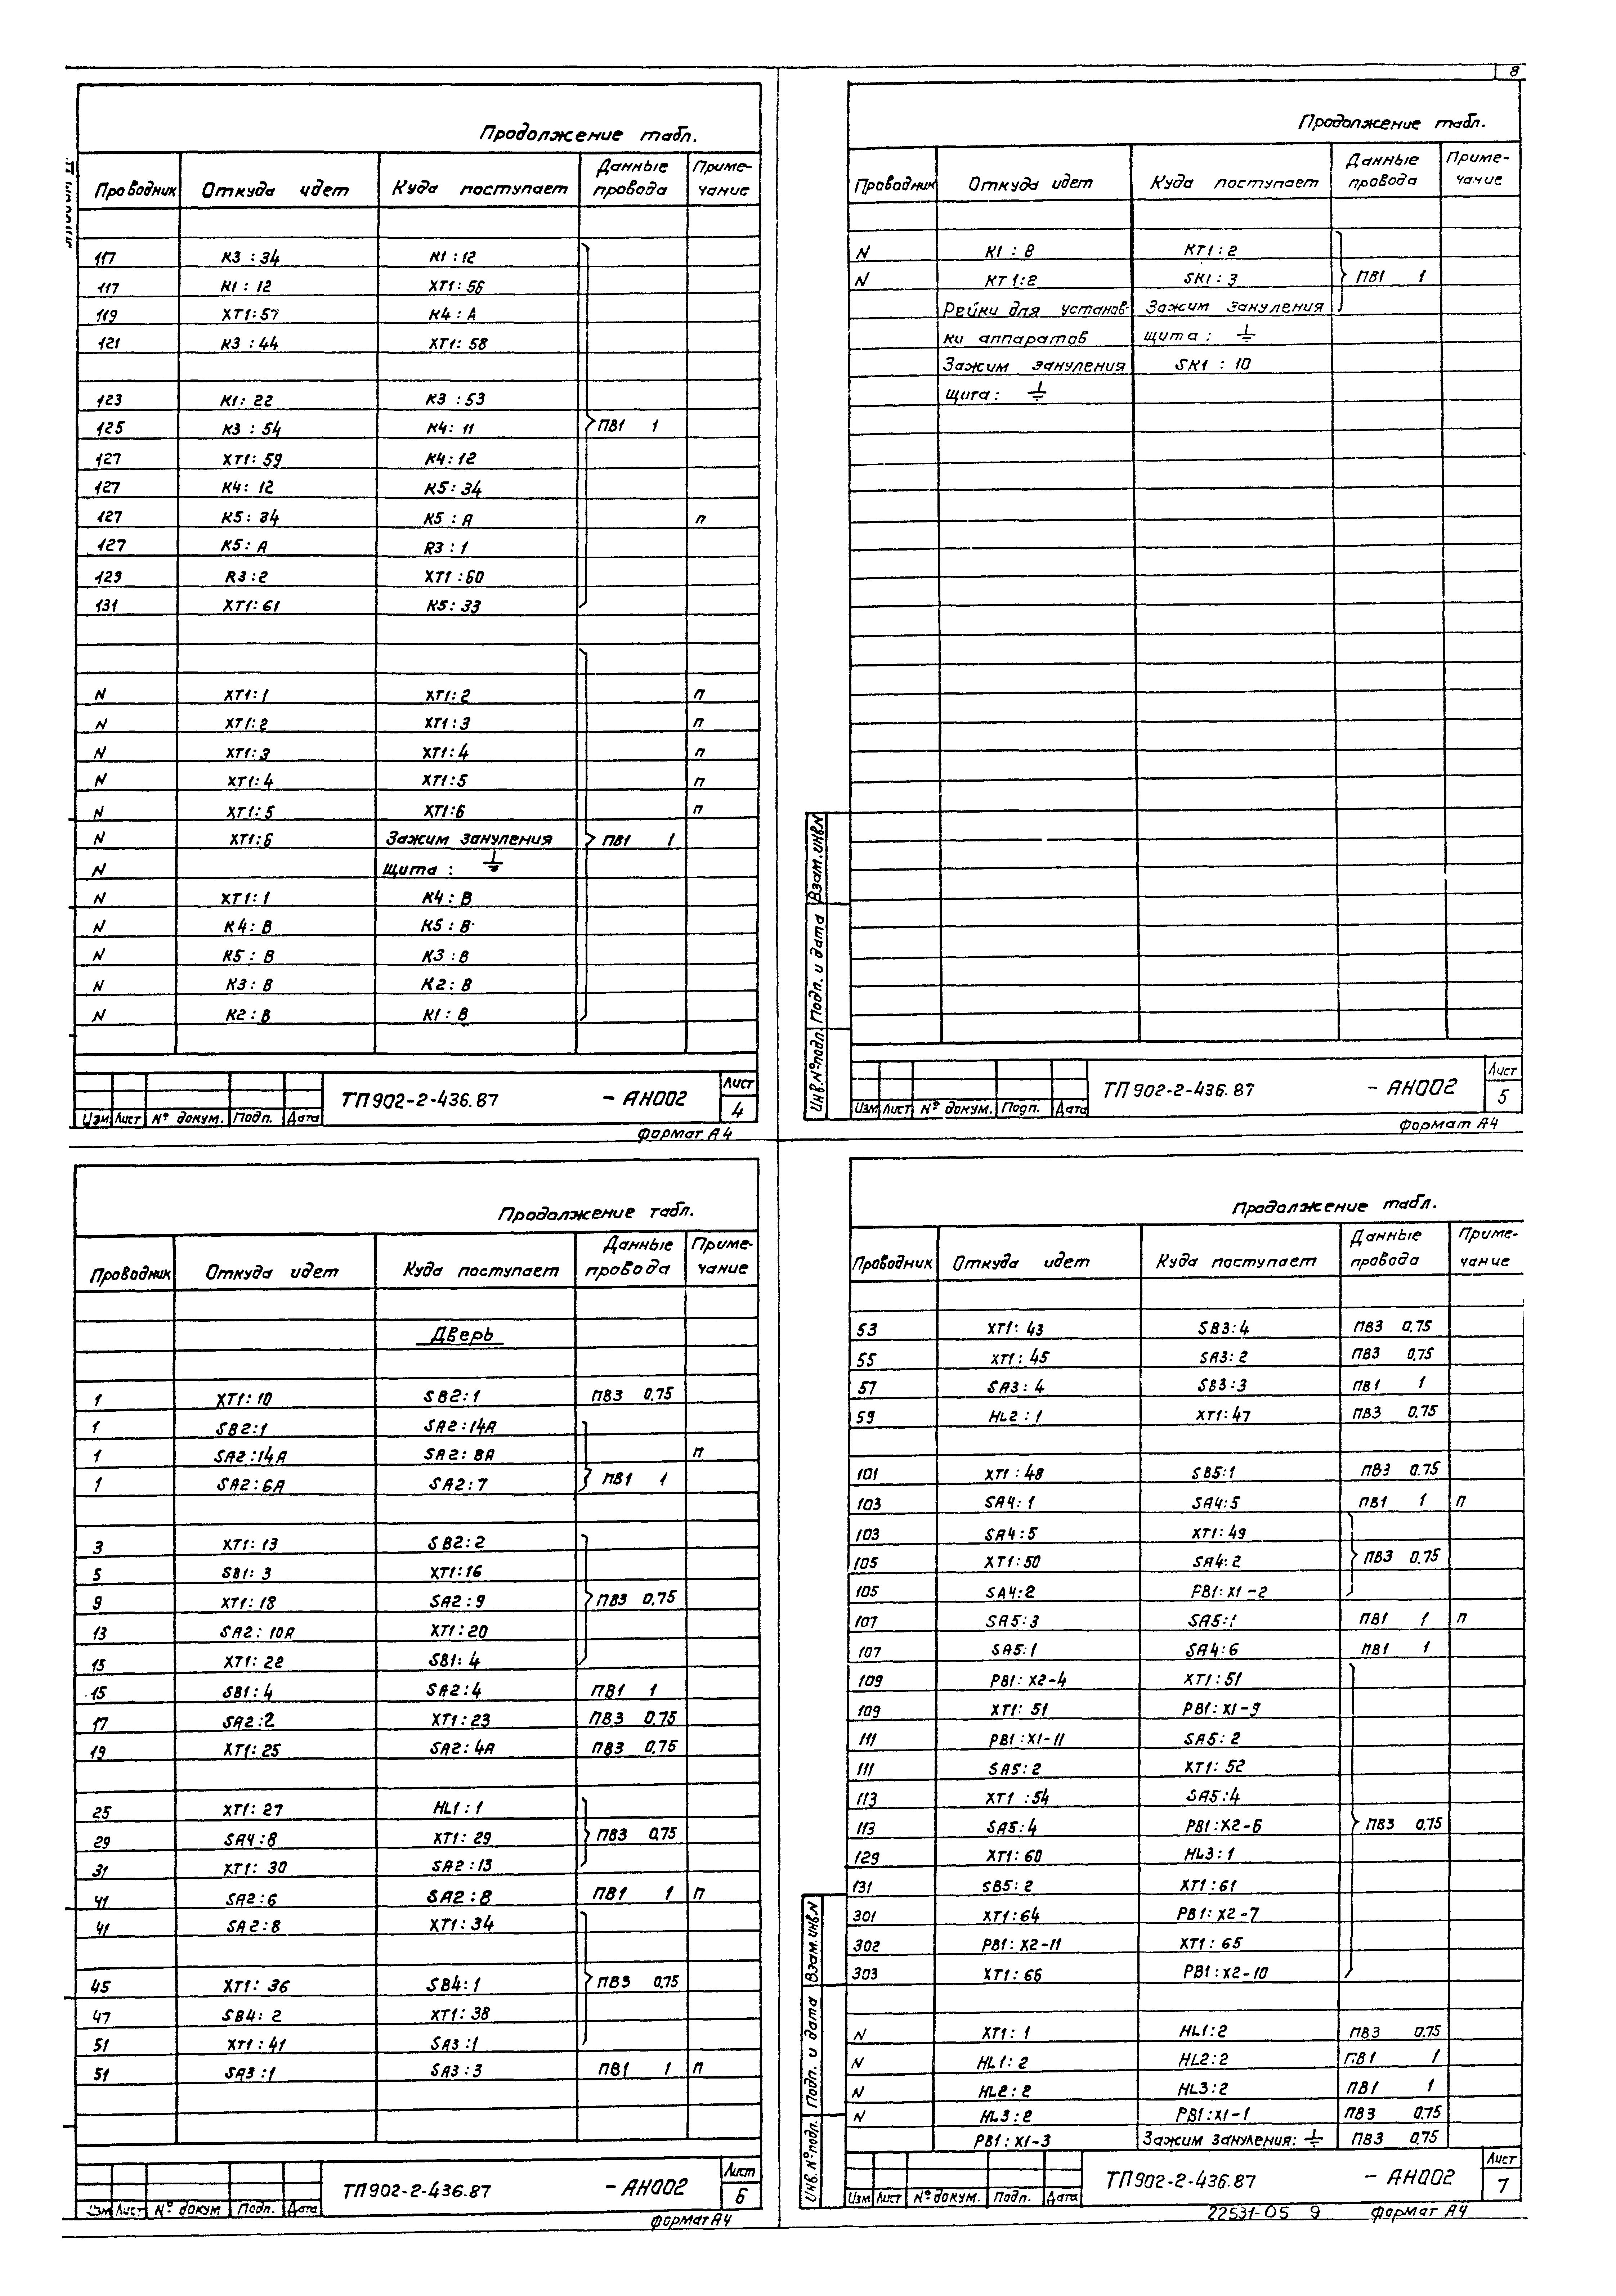 8
Продолжение табл.
Проводник Откуда идет Куда поступает Данные провода Приме-чание
117 К3 : 34 К1 : 12
117 К1 : 12 ХТ1: 56
119 ХТ1: 57 К4 : А
121 К3 : 44 ХТ1: 58
123 К1: 22 К3 : 53
125 К3 : 54 К4: 11 ПВ1 1
127 ХТ1: 59 К4: 12
127 К4: 12 К5: 34
127 К5: 34 К5 : А п
127 К5: А R3 : 1
129 R3 : 2 ХТ1 : 60
131 ХТ1: 61 К5: 33
N ХТ1: 1 ХТ1: 2 п
N ХТ1: 2 ХТ1: 3 п
N ХТ1: 3 ХТ1: 4 п
N ХТ1: 4 ХТ1: 5 п
N ХТ1: 5 ХТ1: 6 п
N ХТ1: 6 Зажим зануления ПВ1 1
N Щита : ⏚
N ХТ1: 1 К4: В
N К4: В К5 : В
N К5 : В К3 : В
N К3: В К2: В
N К2: В К1: В
Изм Лист № докум. Подп. Дата
ТП902-2-436.87 - АН002 Лист 4
формат А4
Продолжение табл.
Проводник Откуда идет Куда поступает Данные провода Приме-чание
N К1 : В КТ1: 2
N КТ1: 2 SК1: 3 ПВ1 1
Рейки для установ- Зажим зануления
ки аппаратов щита : ⏚
Зажим зануления SК1 : 10
Щита : ⏚
Инв.№подл. Подп. и дата Взам.инв.N
Изм Лист № докум. Подп. Дата
ТП902-2-436.87 - АН002 Лист 5
формат А4
Продолжение табл.
Проводник Откуда идет Куда поступает Данные провода Приме-чание
Дверь
1 ХТ1: 10 SВ2: 1 ПВ3 0,75
1 SВ2: 1 SА2: 14А
1 SА2: 14А SА2: 8А п
1 SА2: 6А SА2: 7 ПВ1 1
3 ХТ1: 13 SВ2: 2
5 SВ1: 3 ХТ1: 16
9 ХТ1: 18 SА2: 9 ПВ3 0,75
13 SА2: 10А ХТ1: 20
15 ХТ1: 22 SВ1: 4
15 SВ1: 4 SА2: 4 ПВ1 1
17 SА2: 2 ХТ1: 23 ПВ3 0,75
19 ХТ1: 25 SА2: 4А ПВ3 0,75
25 ХТ1: 27 НL1: 1
29 SА4: 8 ХТ1: 29 ПВ3 0,75
31 ХТ1: 30 SА2: 13
41 SА2: 6 SА2: 8 ПВ1 1 п
41 SА2: 8 ХТ1: 34
45 ХТ1: 36 SВ4: 1 ПВ3 0,75
47 SВ4: 2 ХТ1: 38
51 ХТ1: 41 SА3: 1
51 SА3: 1 SА3: 3 ПВ1 1 п
Изм Лист № докум Подп. Дата
ТП902-2-436.87 - АН002 Лист 6
формат А4
Продолжение табл.
Проводник Откуда идет Куда поступает Данные провода Приме-чание
53 ХТ1: 43 SВ3: 4 ПВ3 0,75
55 ХТ1: 45 SА3: 2 ПВ3 0,75
57 SА3: 4 SВ3: 3 ПВ1 1
59 НL2 : 1 ХТ1: 47 ПВ3 0,75
101 ХТ1 : 48 SВ5: 1 ПВ3 0.75
103 SА4: 1 SА4: 5 ПВ1 1 п
103 SА4: 5 ХТ1: 49
105 ХТ1: 50 SА4: 2 ПВ3 0,75
105 SА4: 2 РВ1: Х1-2
107 SА5: 3 SА5: 1 ПВ1 1 п
107 SА5: 1 SА4: 6 ПВ1 1
109 РВ1: Х2-4 ХТ1: 51
109 ХТ1: 51 РВ1: Х1-9
111 РВ1 : Х1-11 SА5: 2
111 SА5: 2 ХТ1: 52
113 ХТ1 : 54 SА5: 4
113 SА5: 4 РВ1: Х2-6 ПВ3 0,75
129 ХТ1: 60 НL3: 1
131 SВ5: 2 ХТ1: 61
301 ХТ1: 64 РВ1: Х2-7
302 РВ1: Х2-11 ХТ1: 65
303 ХТ1: 66 РВ1: Х2-10
N ХТ1: 1 НL1: 2 ПВ3 0,75
N НL1: 2 НL2: 2 ПВ1 1
N НL2: 2 НL3: 2 ПВ1 1
N НL3: 2 РВ1: Х1-1 ПВ3 0,75
РВ1: Х1-3 Зажим зануления: ⏚ ПВ3 0,75
Инв.№подл. Подп. и дата Взам.инв.N
Изм Лист № докум. Подп. Дата
ТП902-2-436.87 - АН002 Лист 7
22531-05 9 формат А4